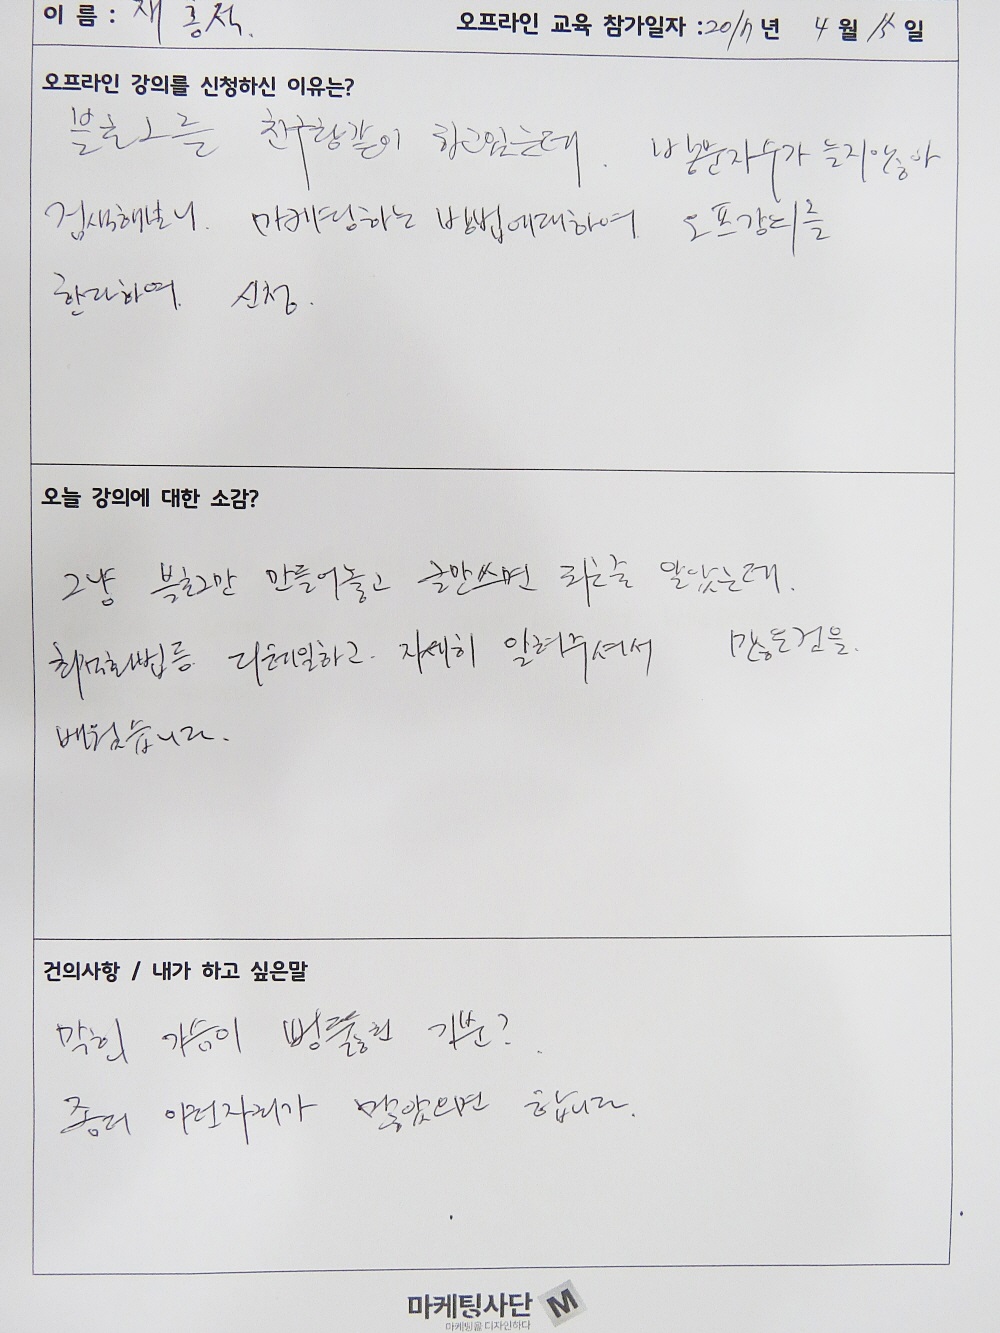 이 름 : 채 홍석. 오프라인 교육 참가일자 : 2017년 4월 15일
오프라인 강의를 신청하신 이유는?
블로그를 친구랑같이 하고있는데. 방문자수가 늘지않아
검색해보니. 마케팅하는 방법에대하여 오프강의를
한다하여. 신청.
오늘 강의에 대한 소감?
그냥 블로그만 만들어놓고 글만쓰면 되는줄 알았는데.
최적화방법등 디테일하고. 자세히 알려주셔서 많은걸을.
배웠습니다.
건의사항 / 내가 하고 싶은말
막힌 가슴이 뻥뚫힌 기분?.
좀더 이런자리가 많았으면 합니다.
마케팅사단 M
마케팅을 디자인하다